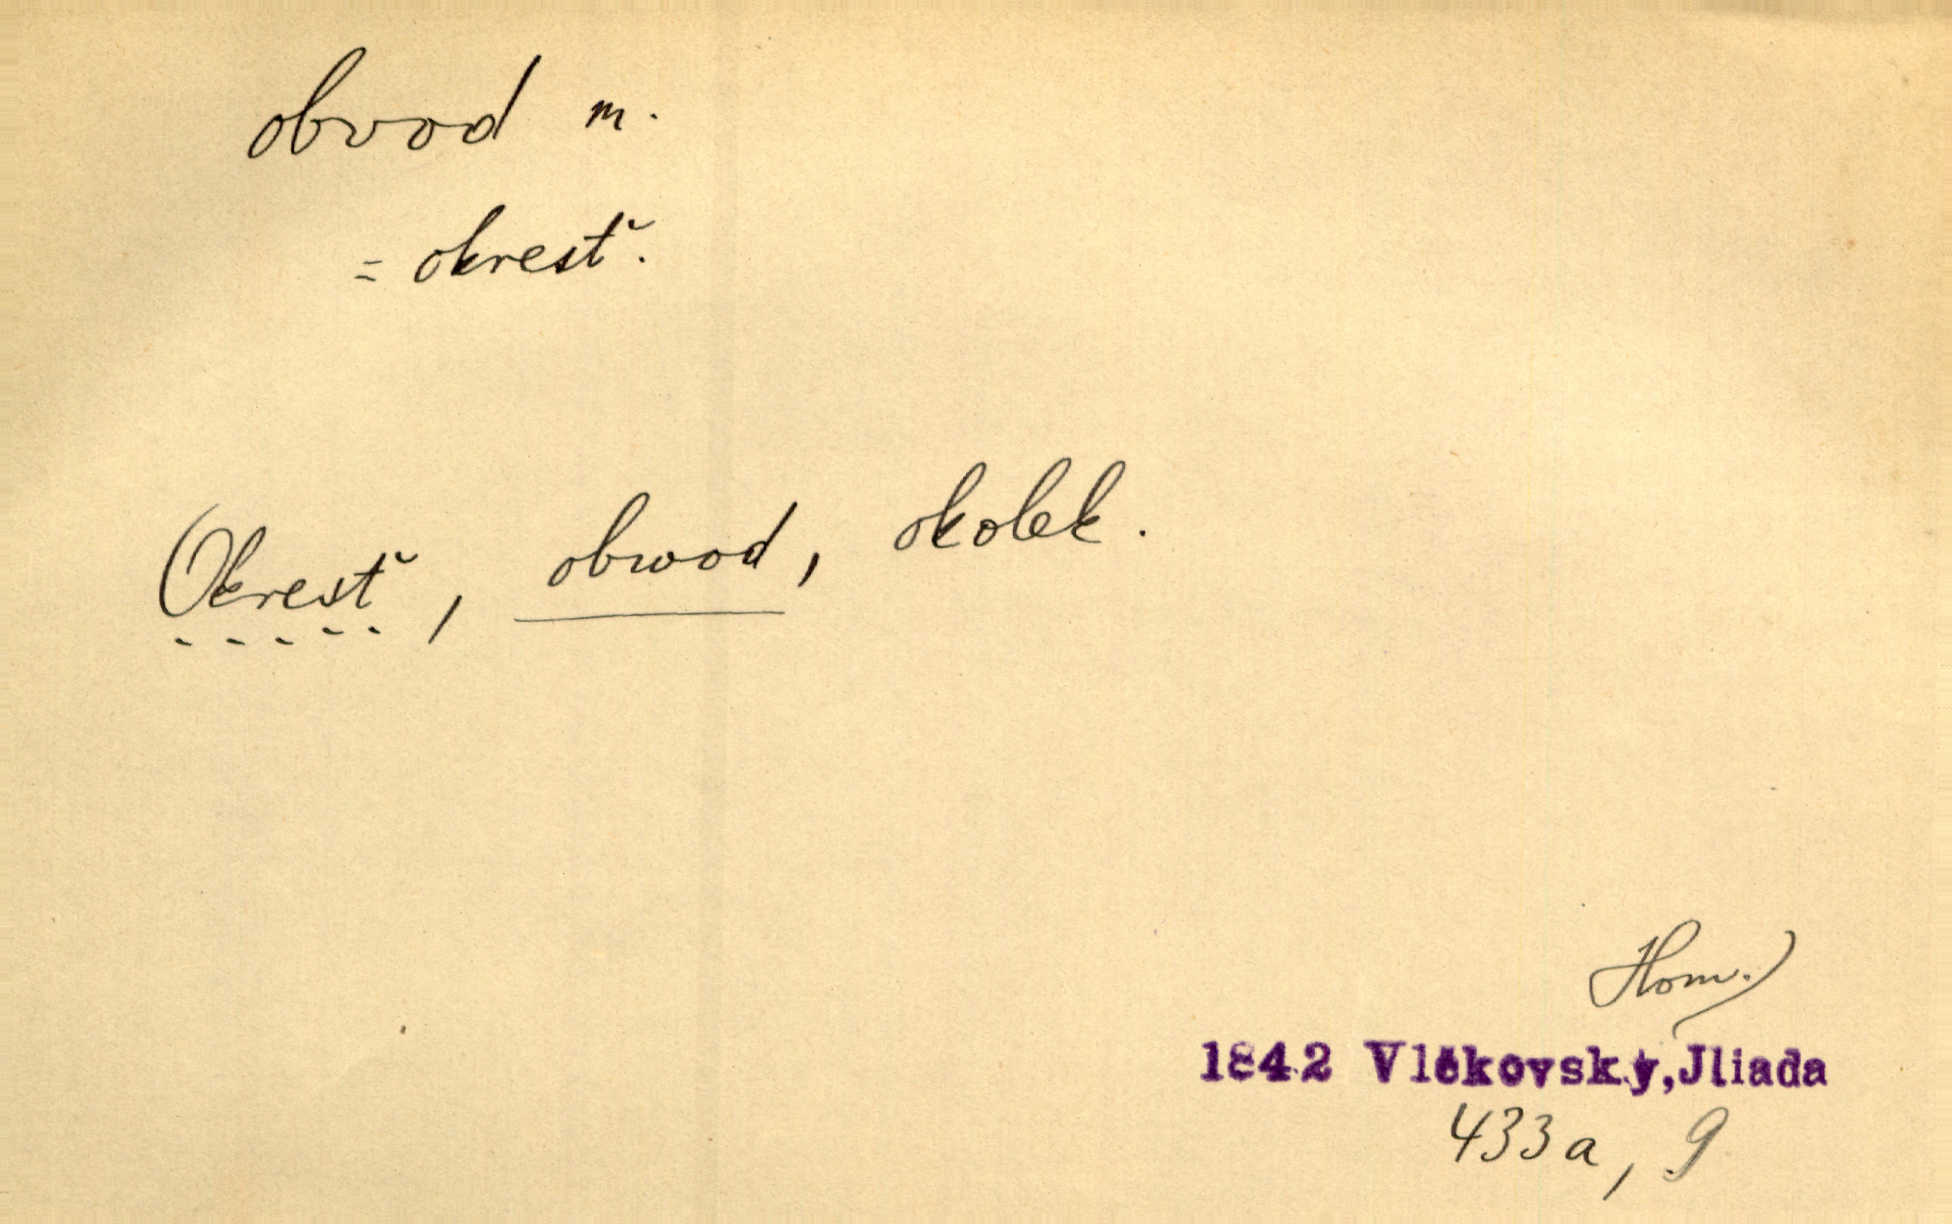 obvod m.
= okresť.
Okresť, obwod, okolek.
Hom.)
1842 Vlčkovský, Jliada
433a, 9